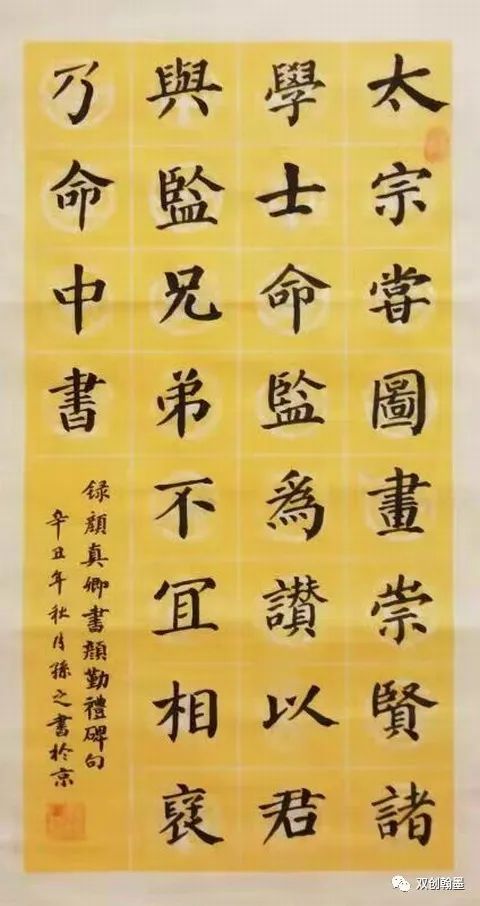 太宗甞圖畫崇賢諸
學士命監為讃以君
與監兄弟不冝相襃
乃命中書
録顔真卿書顔勤禮碑句
辛丑年秋月孫之書於京
双创翰墨